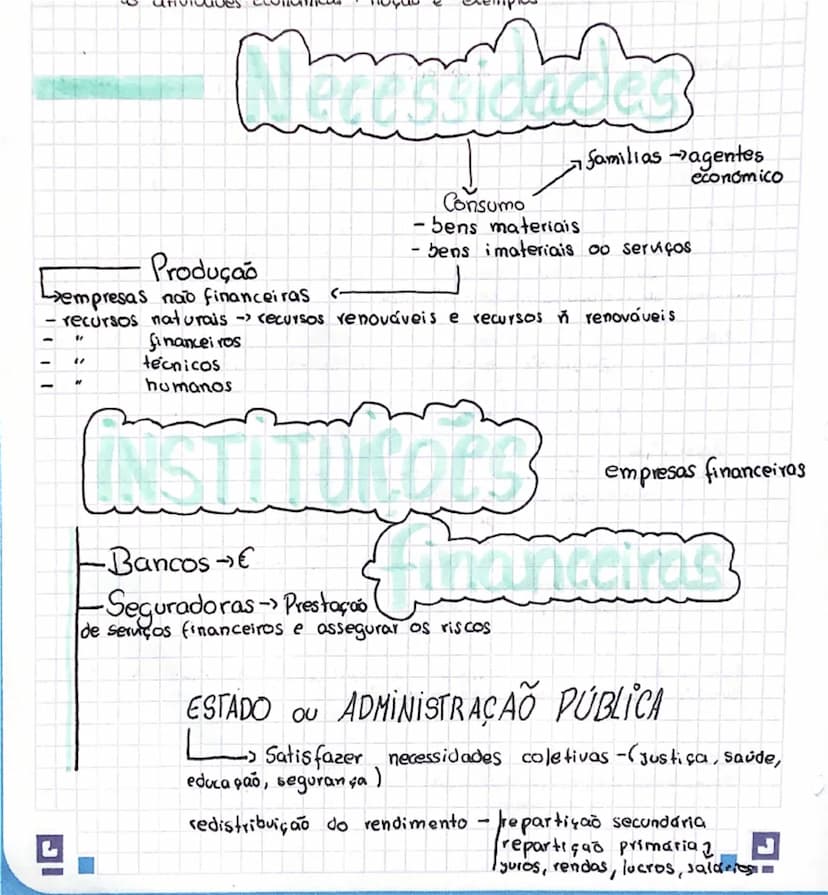 atividades económicas · noção e exemplos
Necessidades
famílias → agentes
económico
Consumo
- bens materiais
- bens imateriais ou serviços
Produção
→ empresas não financeiras ←
- recursos naturais → recursos renováveis e recursos ñ renováveis
- " financeiros
- " técnicos
- " humanos
INSTITUIÇÕES
empresas financeiras
financeiras
Bancos → €
Seguradoras → Prestação
de serviços financeiros e assegurar os riscos
ESTADO ou ADMINISTRAÇÃO PÚBLICA
→ Satisfazer necessidades coletivas - (justiça, saúde,
educação, segurança)
redistribuição do rendimento - repartição secundária
repartição primária
juros, rendas, lucros, salários